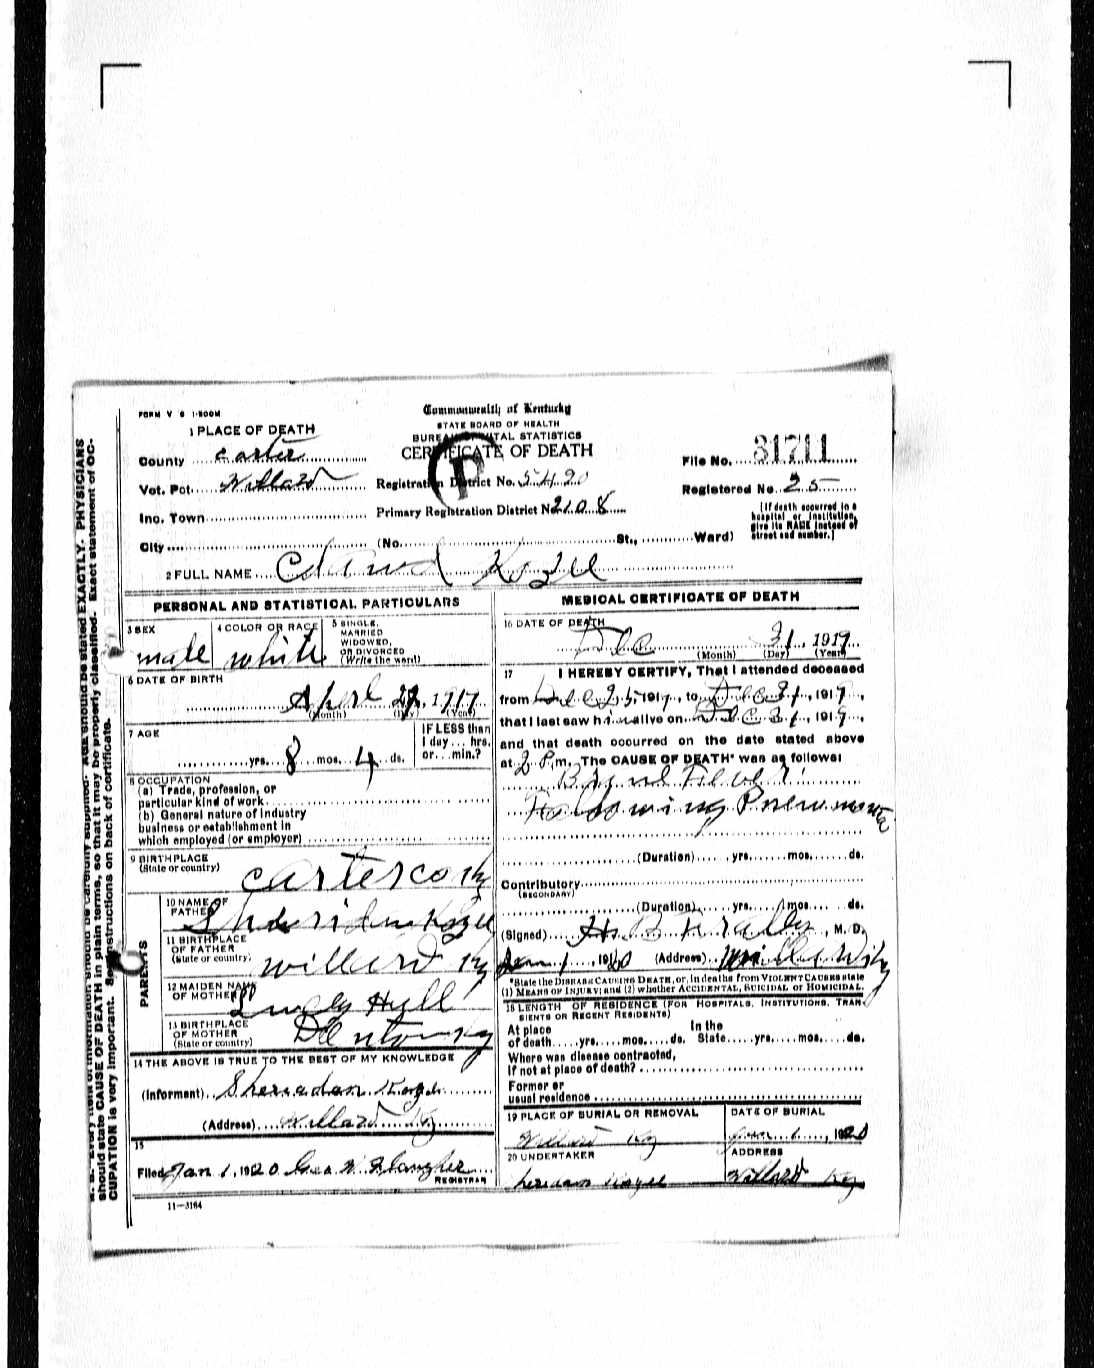 FORM V S 1-500M
Commonwealth of Kentucky
STATE BOARD OF HEALTH
BUREAU VITAL STATISTICS
CERTIFICATE OF DEATH
P
1 PLACE OF DEATH
County Carter
Vot. Pct. Willard
Inc. Town
City
Registration District No. 5420
Primary Registration District No 2108
(No. St., Ward)
File No. 31711
Registered No. 25
[If death occurred in a hospital or institution, give its NAME instead of street and number.]
2 FULL NAME Kozee
PERSONAL AND STATISTICAL PARTICULARS
3 SEX male
4 COLOR OR RACE white
5 SINGLE, MARRIED WIDOWED, OR DIVORCED (Write the word)
6 DATE OF BIRTH
(Month) (Day) (Year)
7 AGE
yrs. 8 mos. 4 ds.
IF LESS than 1 day ... hrs. or ... min.?
8 OCCUPATION
(a) Trade, profession, or
particular kind of work
(b) General nature of industry
business or establishment in
which employed (or employer)
9 BIRTHPLACE
(State or country) Carter co Ky
PARENTS
10 NAME OF FATHER Sheridan Kozee
11 BIRTHPLACE OF FATHER (State or country) Willard Ky
12 MAIDEN NAME OF MOTHER
13 BIRTHPLACE OF MOTHER (State or country) Denton Ky
14 THE ABOVE IS TRUE TO THE BEST OF MY KNOWLEDGE
(Informant) Sheriadan Kozee
(Address) Willard Ky
15
Filed Jan 1, 1920 Geo
REGISTRAR
11-3164
MEDICAL CERTIFICATE OF DEATH
16 DATE OF DEATH
Dec 31 1919
(Month) (Day) (Year)
17 I HEREBY CERTIFY, That I attended deceased
from Dec 25, 1919, to Dec 31, 1919,
that I last saw him alive on Dec 31, 1919,
and that death occurred on the date stated above
at 2 P.m. The CAUSE OF DEATH* was as follows:
Fever
Following Pneumonia
(Duration) yrs. mos. ds.
Contributory
(SECONDARY)
(Duration) yrs. mos. ds.
(Signed) H. B., M. D.
Jan 1 1920 (Address)
*State the DISEASE CAUSING DEATH, or, in deaths from VIOLENT CAUSES state
(1) MEANS OF INJURY; and (2) whether ACCIDENTAL, SUICIDAL or HOMICIDAL.
18 LENGTH OF RESIDENCE (FOR HOSPITALS, INSTITUTIONS, TRANSIENTS OR RECENT RESIDENTS)
At place of death yrs. mos. ds. In the State yrs. mos. ds.
Where was disease contracted,
if not at place of death?
Former or
usual residence
19 PLACE OF BURIAL OR REMOVAL
Willard Ky
DATE OF BURIAL
Jan 1, 1920
20 UNDERTAKER
ADDRESS
Willard Ky
should state CAUSE OF DEATH in plain terms, so that it may be properly classified. Exact statement of OC-
CUPATION is very important. See instructions on back of certificate.